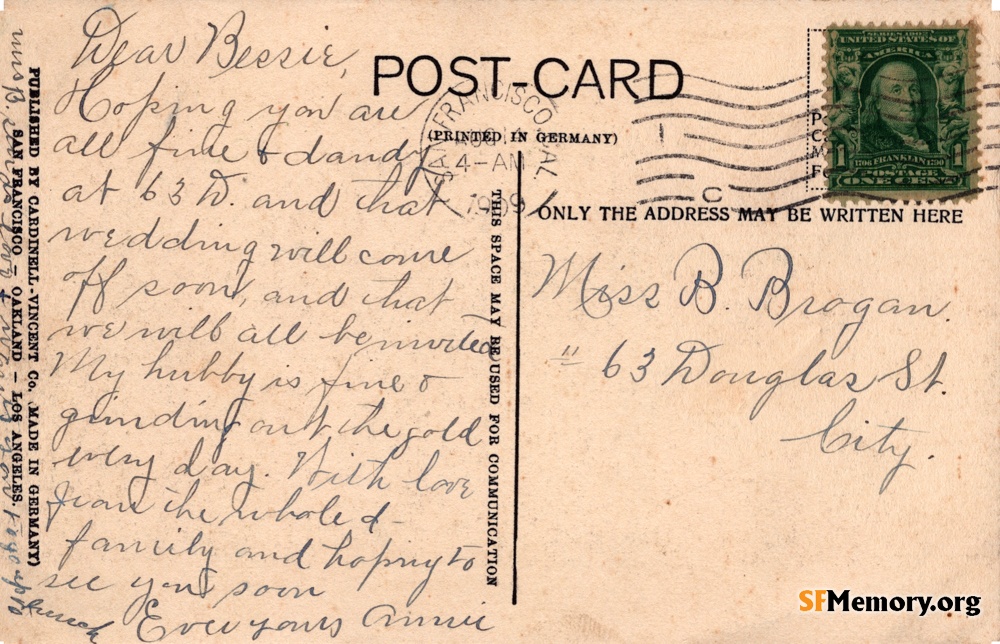 Dear Bessie,
Hoping you are
all fine & dandy
at 63 D. and that
wedding will come
off soon, and that
we will all be invited
My hubby is fine &
grinding out the gold
every day. With love
from the whole d-
family and hoping to
see you soon
Ever yours Annie
PUBLISHED BY CARDINELL-VINCENT Co. (MADE IN GERMANY)
SAN FRANCISCO – OAKLAND – LOS ANGELES.
POST-CARD
(PRINTED IN GERMANY)
THIS SPACE MAY BE USED FOR COMMUNICATION
SAN FRANCISCO CAL
AUG
4-AM
1909
C
SERIES 1902
UNITED STATES OF
AMERICA
1 1
1706 FRANKLIN 1790
POSTAGE
ONE CENT
ONLY THE ADDRESS MAY BE WRITTEN HERE
Miss B. Brogan.
" 63 Douglas St
City.
SFMemory.org